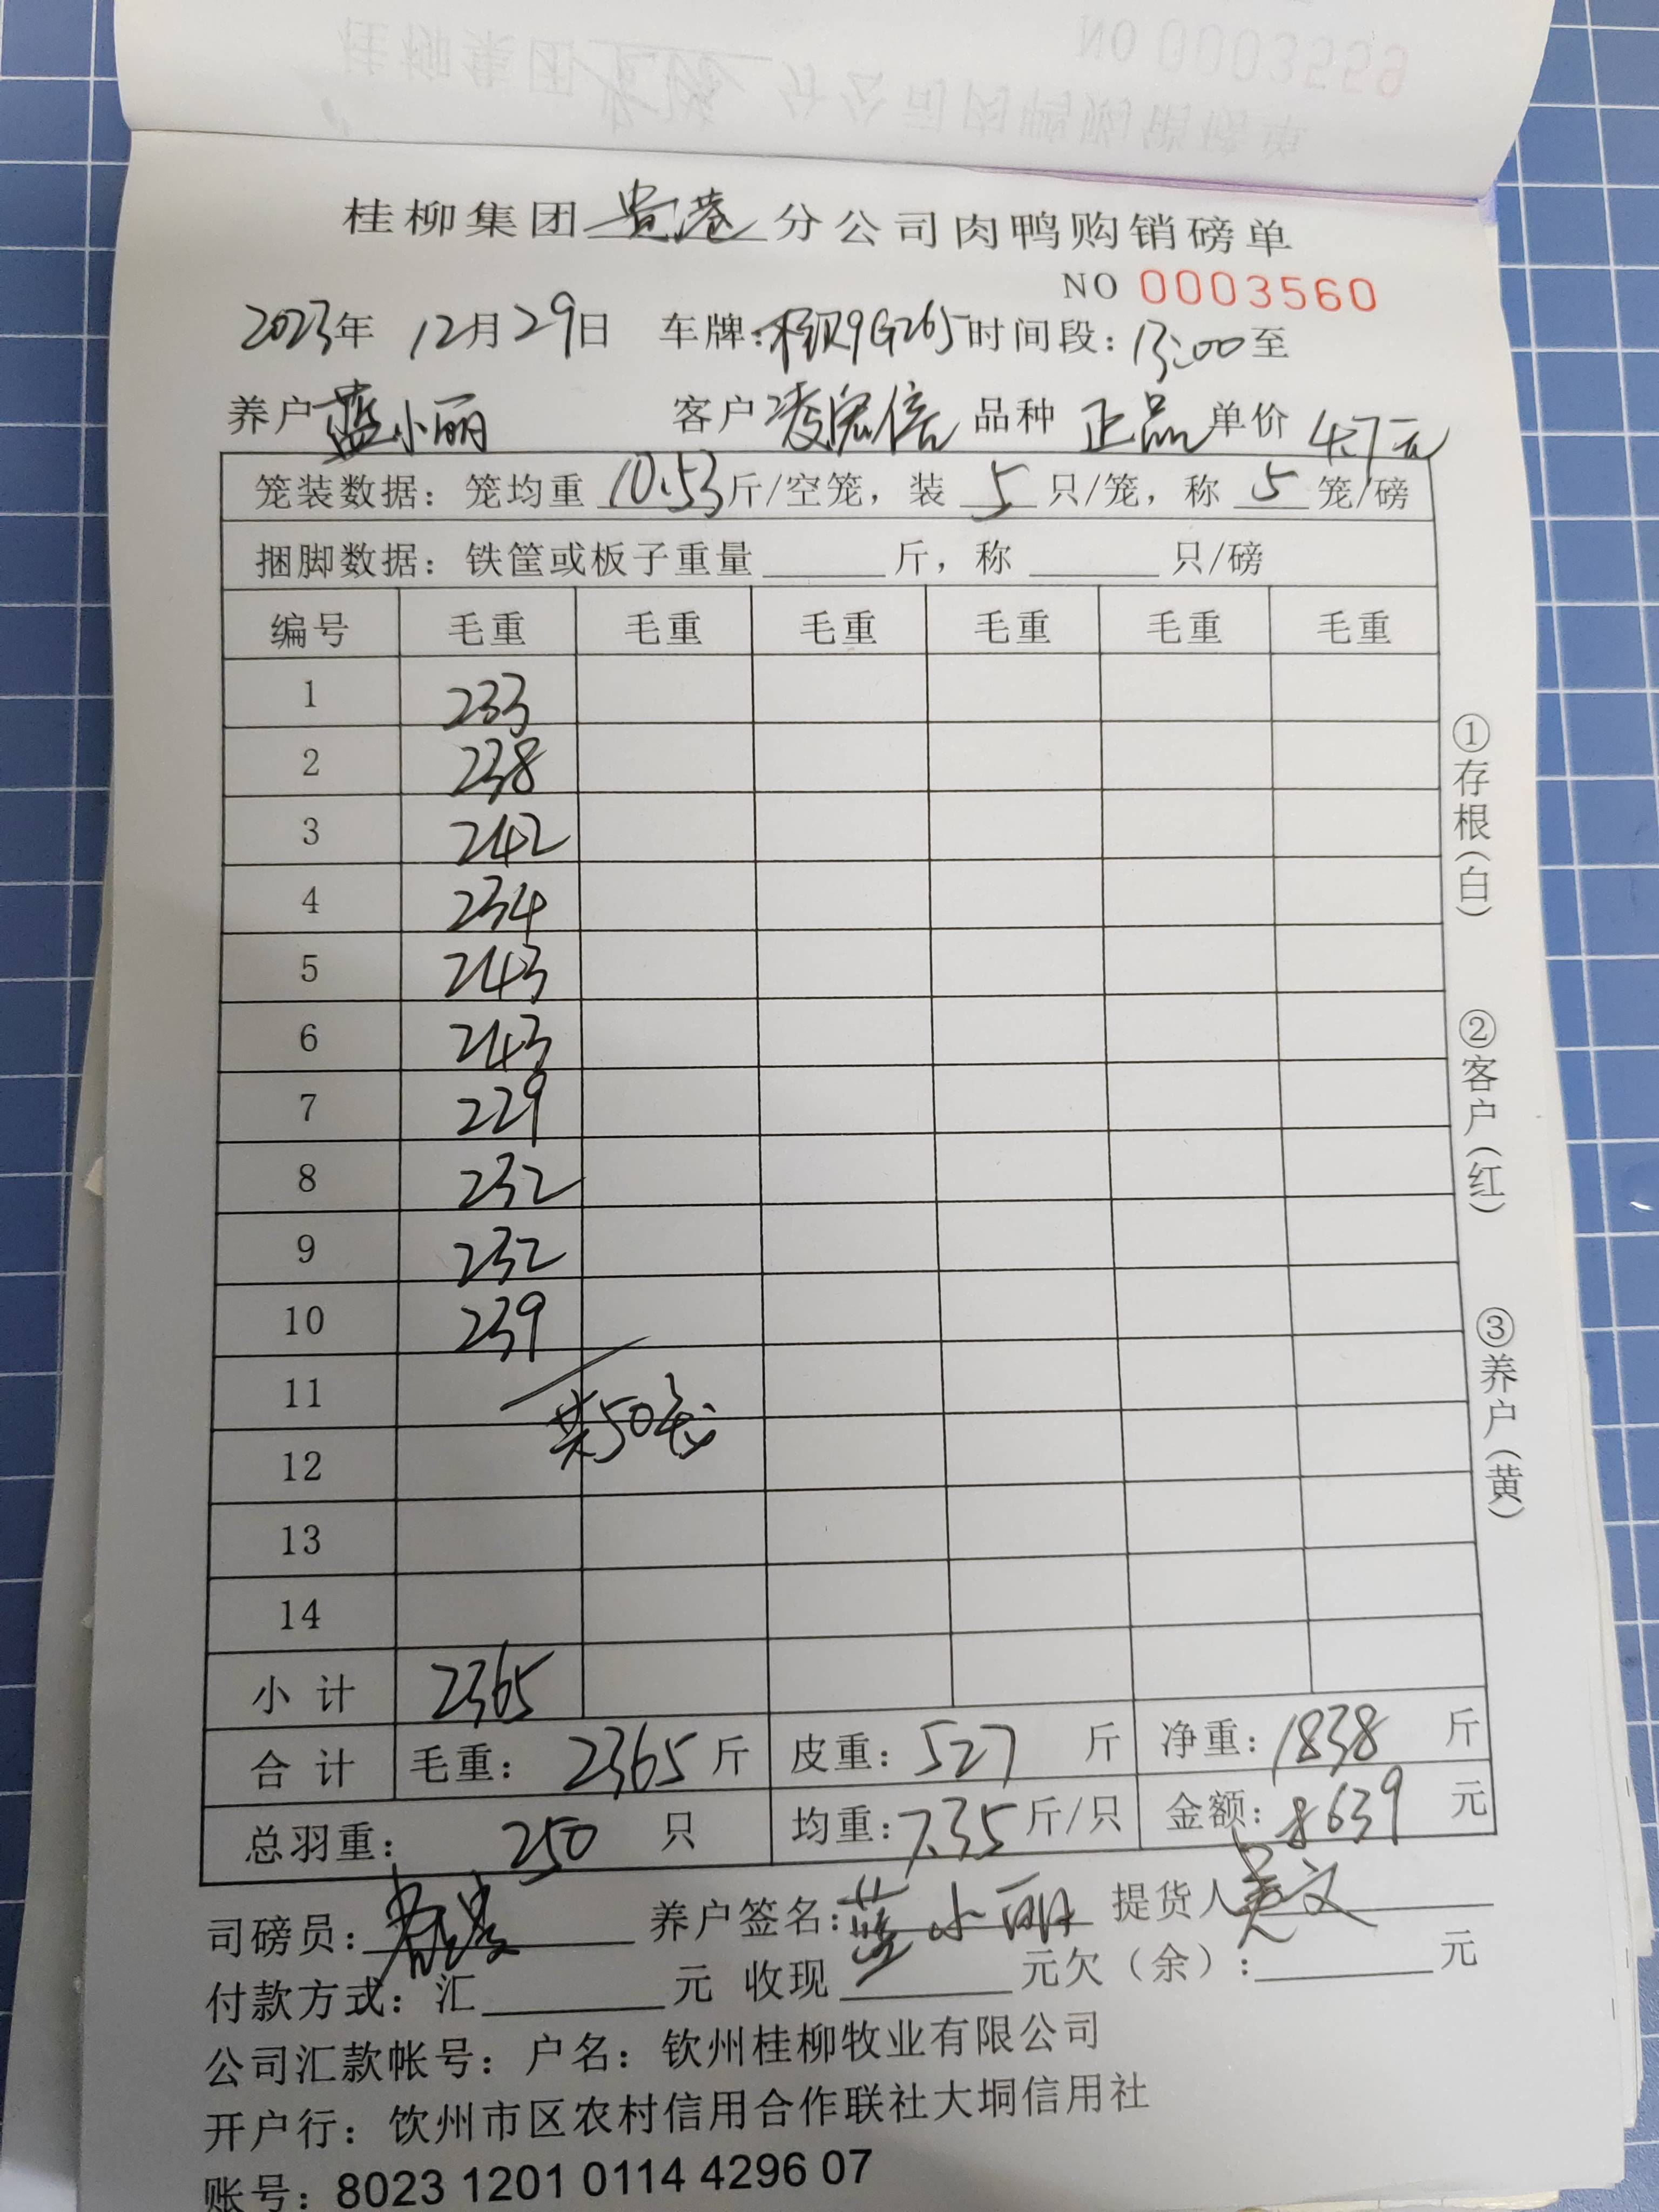 桂柳集团贵港分公司肉鸭购销磅单
NO 0003560
2023年 12月29日 车牌:桂R9G265时间段:13:00至
养户蓝小丽 客户凌宏信 品种 正品 单价 4.7元
笼装数据:笼均重 10.53斤/空笼,装 5 只/笼,称 5 笼/磅
捆脚数据:铁筐或板子重量 斤,称 只/磅
编号 毛重 毛重 毛重 毛重 毛重 毛重
1 233
2 238
3 242
4 234
5 243
6 243
7 229
8 232
9 232
10 239
11
共50笼
12
13
14
小计 2365
合计 毛重: 2365斤 皮重:527 斤 净重:1838 斤
总羽重: 250 只 均重:7.35斤/只 金额:8639 元
司磅员: 养户签名:蓝小丽 提货人
付款方式:汇 元 收现 元欠(余): 元
公司汇款帐号:户名:钦州桂柳牧业有限公司
开户行:钦州市区农村信用合作联社大垌信用社
账号:8023 1201 0114 4296 07
①存根(白)
②客户(红)
③养户(黄)